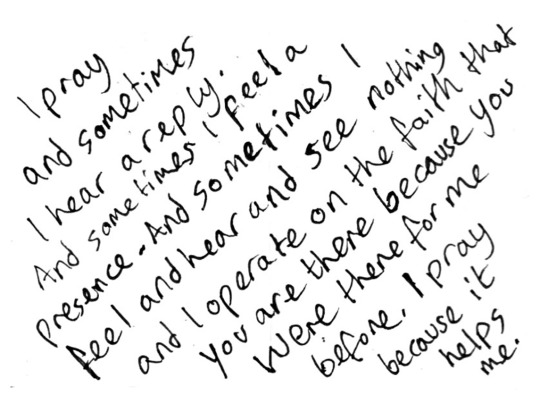 I pray
and sometimes
I hear a reply.
And sometimes I feel a
presence. And sometimes I
feel and hear and see nothing
and I operate on the faith that
you are there because you
were there for me
before. I pray
because it
helps
me.